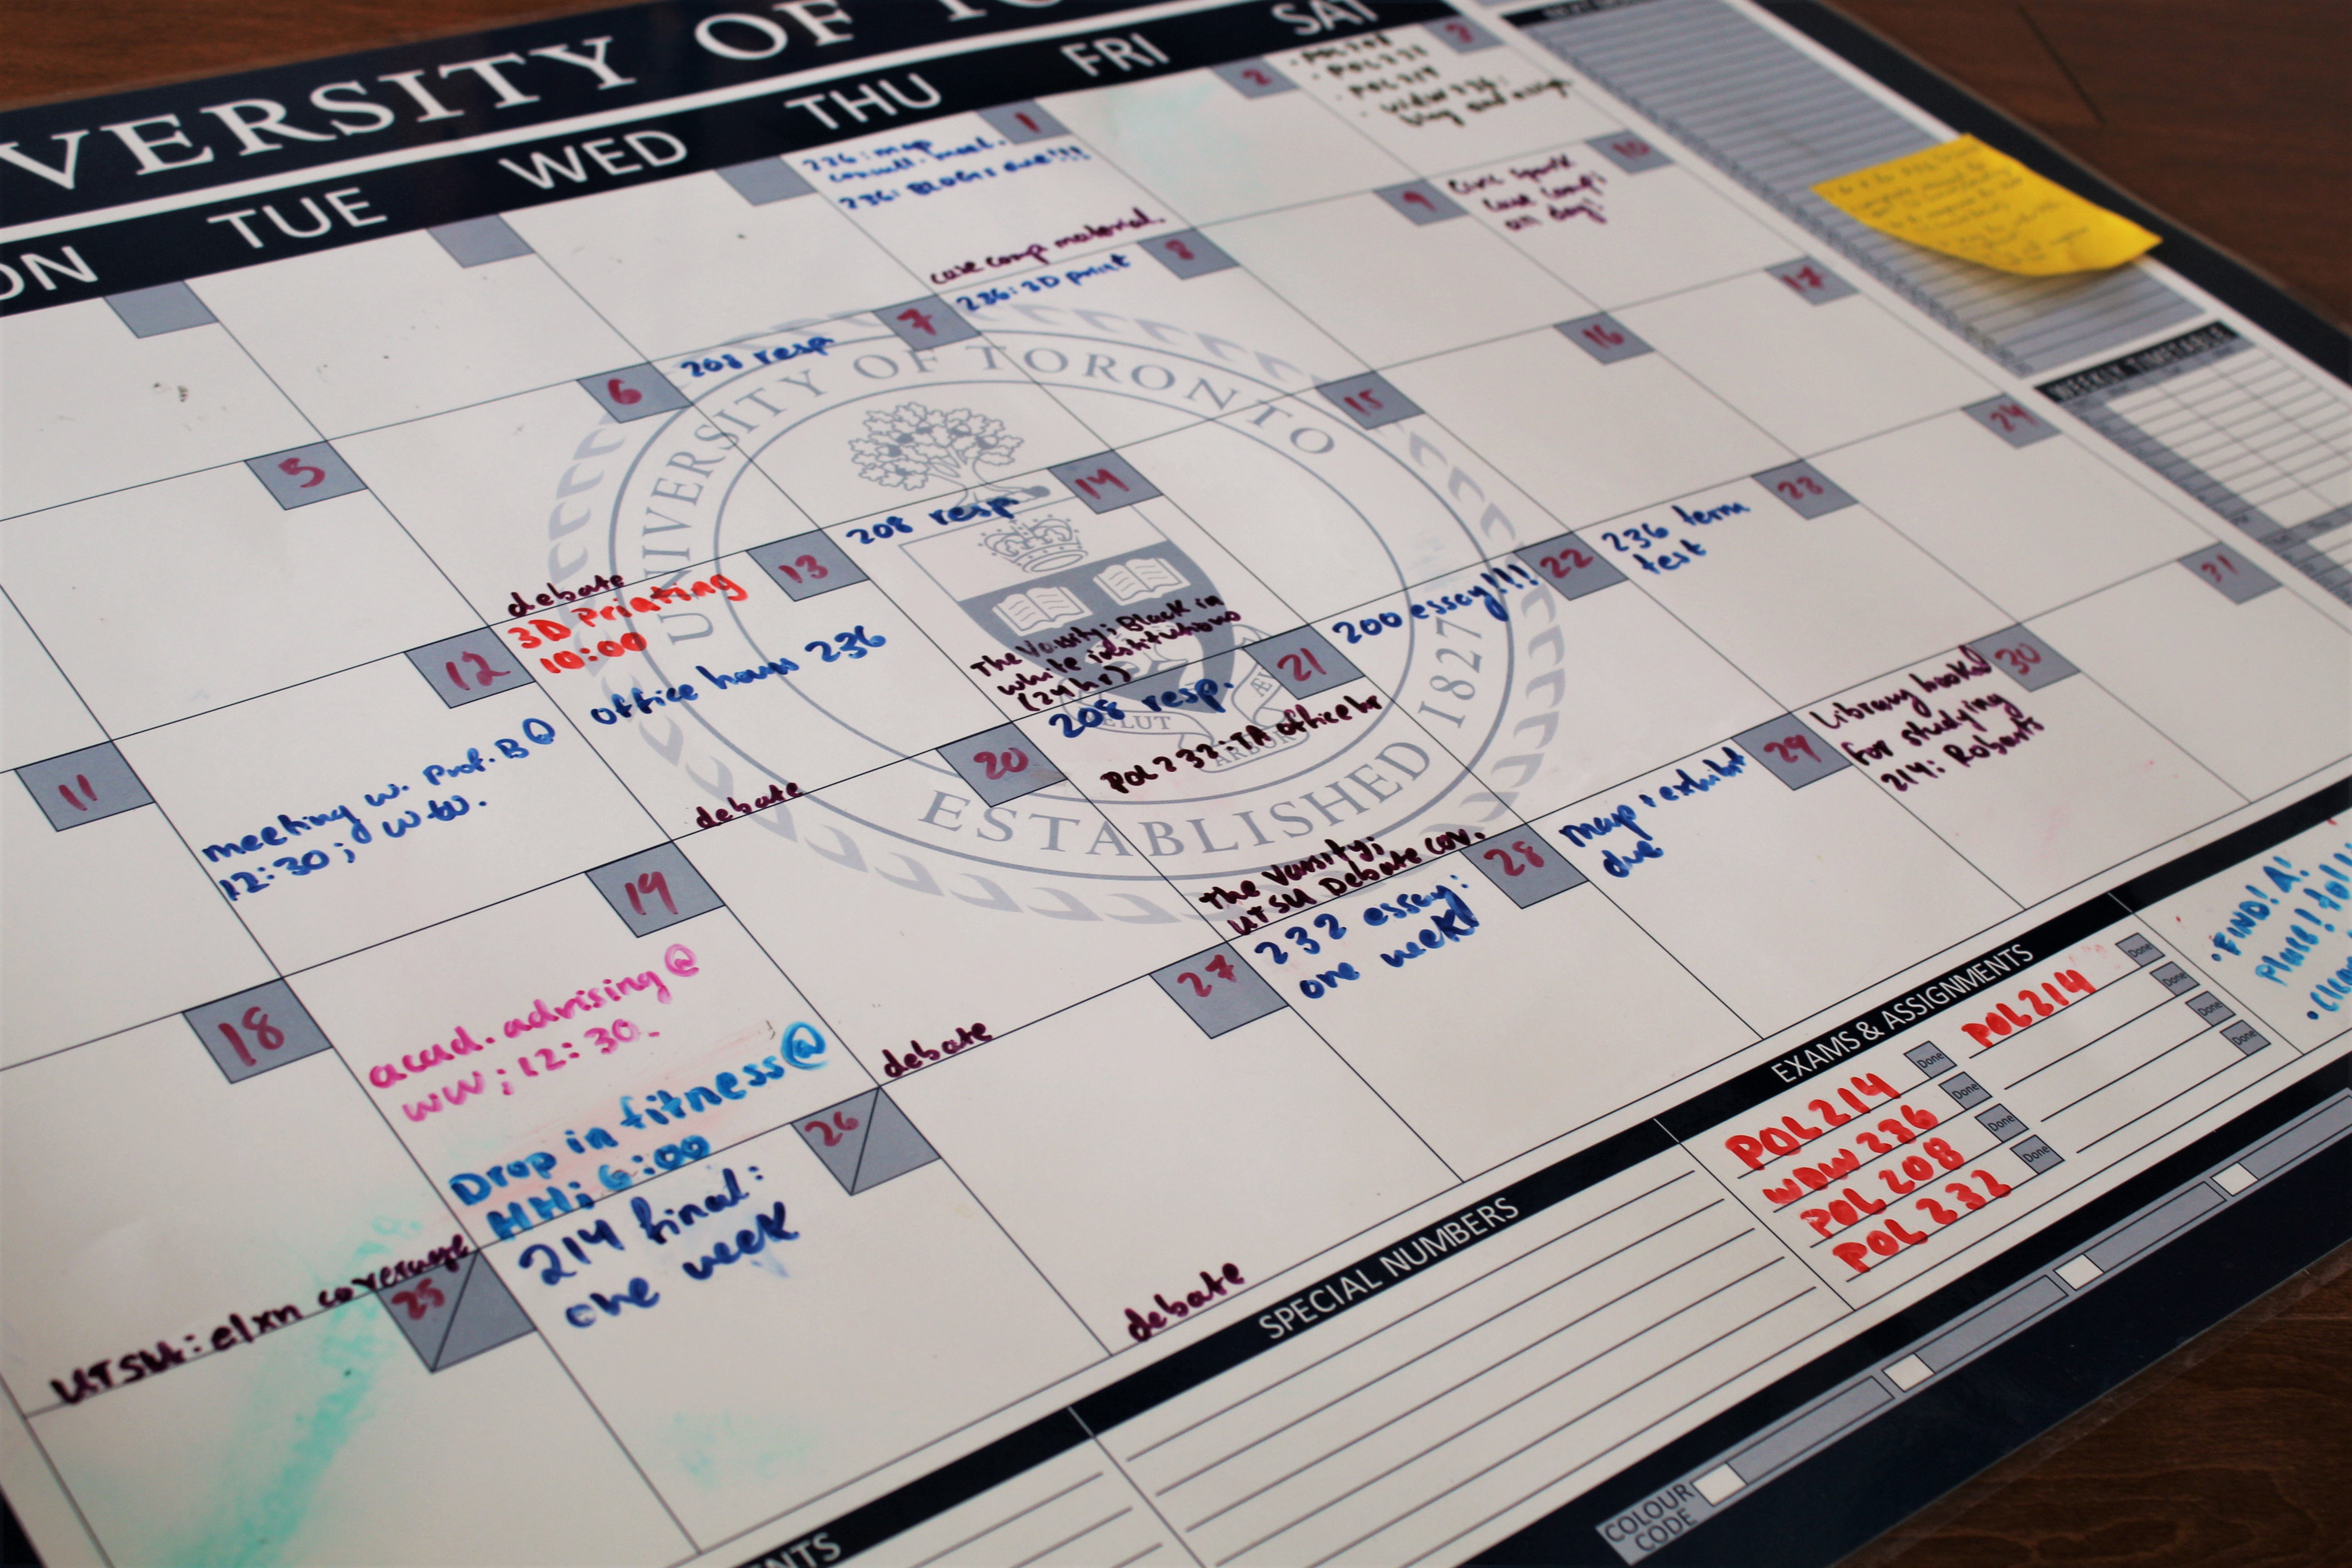 VERSITY OF
ON TUE WED THU FRI SAT
1
236: map
consult. meet.
236: BLOGS due!!!!
case comp material.
2
3
5
6
debate
7
208 resp
8
236: 3D print
9
10
Civic spark
case comp:
all day!
11
12
meeting w. Prof. B @
12:30;
13
3D Printing
10:00
office hours 236
debate
14
208 resp
The Varsity: Black in
white institutions
(24hr)
15
16
17
18
UTSU: elxn coverage
19
acad. advising @
WW; 12:30.
Drop in fitness @
HH; 6:00
20
debate
21
208 resp.
POL 232: TA office hr
The Varsity;
UTSU Debate cov.
22
200 essay!!!
23
236 term
test
24
25
26
214 final:
one week
27
debate
28
232 essay:
one week!
29
map exhibit
due
30
Library books!
for studying
214: Roberts
31
UNIVERSITY OF TORONTO
VELUT
ARBOR
ÆV
ESTABLISHED 1827
WEEKLY TIMETABLE
EXAMS & ASSIGNMENTS
POL 214 Done
WDW 236 Done
POL 208 Done
POL 232 Done
POL 214 Done
Done
Done
Done
• FIND! A!
SPECIAL NUMBERS
NTS
COLOUR
CODE